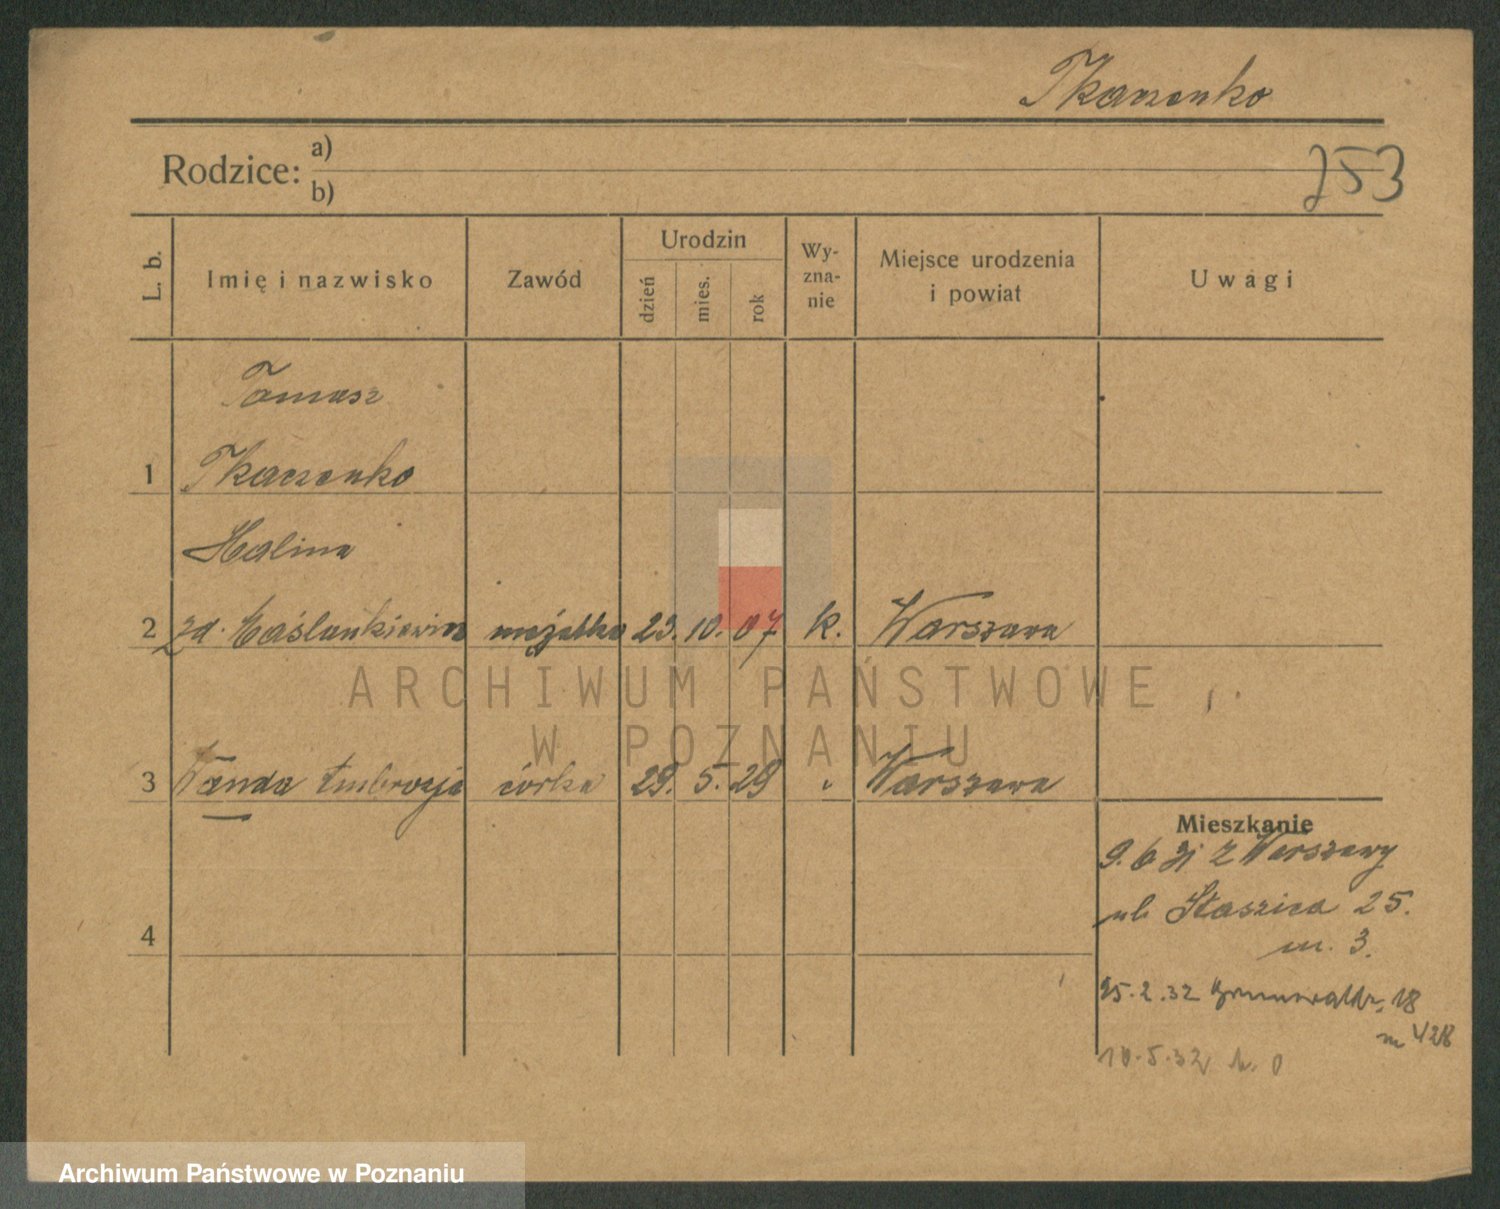 Tkaczenko
Rodzice: a)
b)
753
L. b.
Imię i nazwisko
Zawód
Urodzin
dzień
mies.
rok
Wy-
zna-
nie
Miejsce urodzenia
i powiat
Uwagi
Tomasz
1 Tkaczenko
Halina
2 zd. Maślankiewicz mężatka 23. 10. 07 k. Warszawa
3 Wanda Ambrozja córka 29. 5. 29 " Warszawa
Mieszkanie
9. 6 31 z Warszawy
ul. Staszica 25.
m. 3.
4
25.2.32 Grunwaldz. 18
m 428
10.5.32
ARCHIWUM PAŃSTWOWE
W POZNANIU
Archiwum Państwowe w Poznaniu